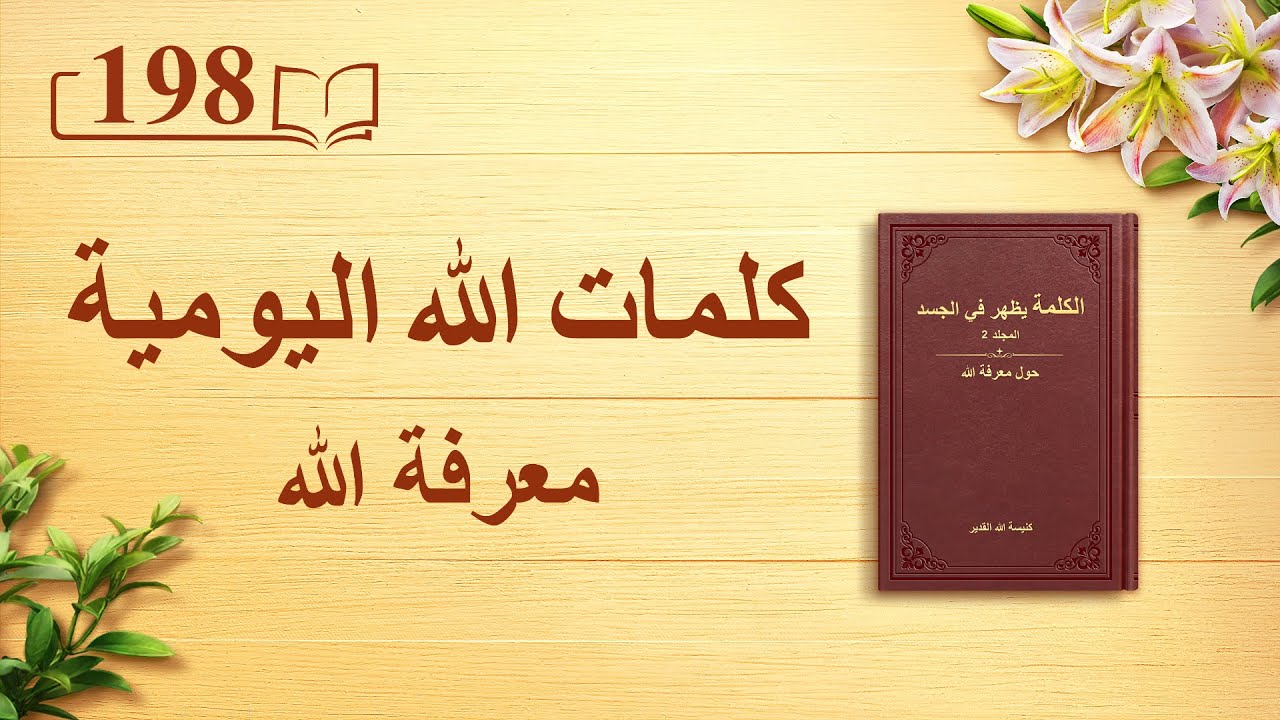 198
كلمات الله اليومية
معرفة الله
الكلمة يظهر في الجسد
المجلد 2
حول معرفة الله
كنيسة الله القدير